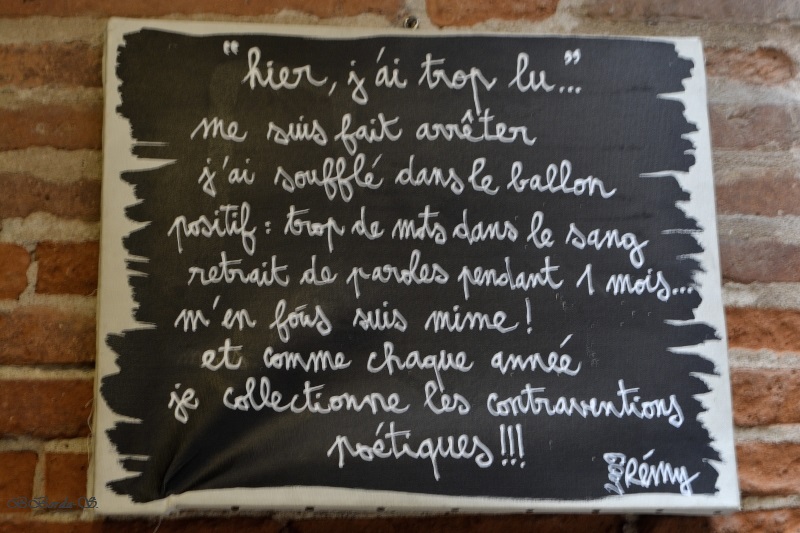 "hier, j'ai trop lu..."
me suis fait arrêter
j'ai soufflé dans le ballon
positif : trop de mots dans le sang
retrait de paroles pendant 1 mois...
m'en fous suis mime !
et comme chaque année
je collectionne les contraventions
poétiques !!!
2009 Rémy